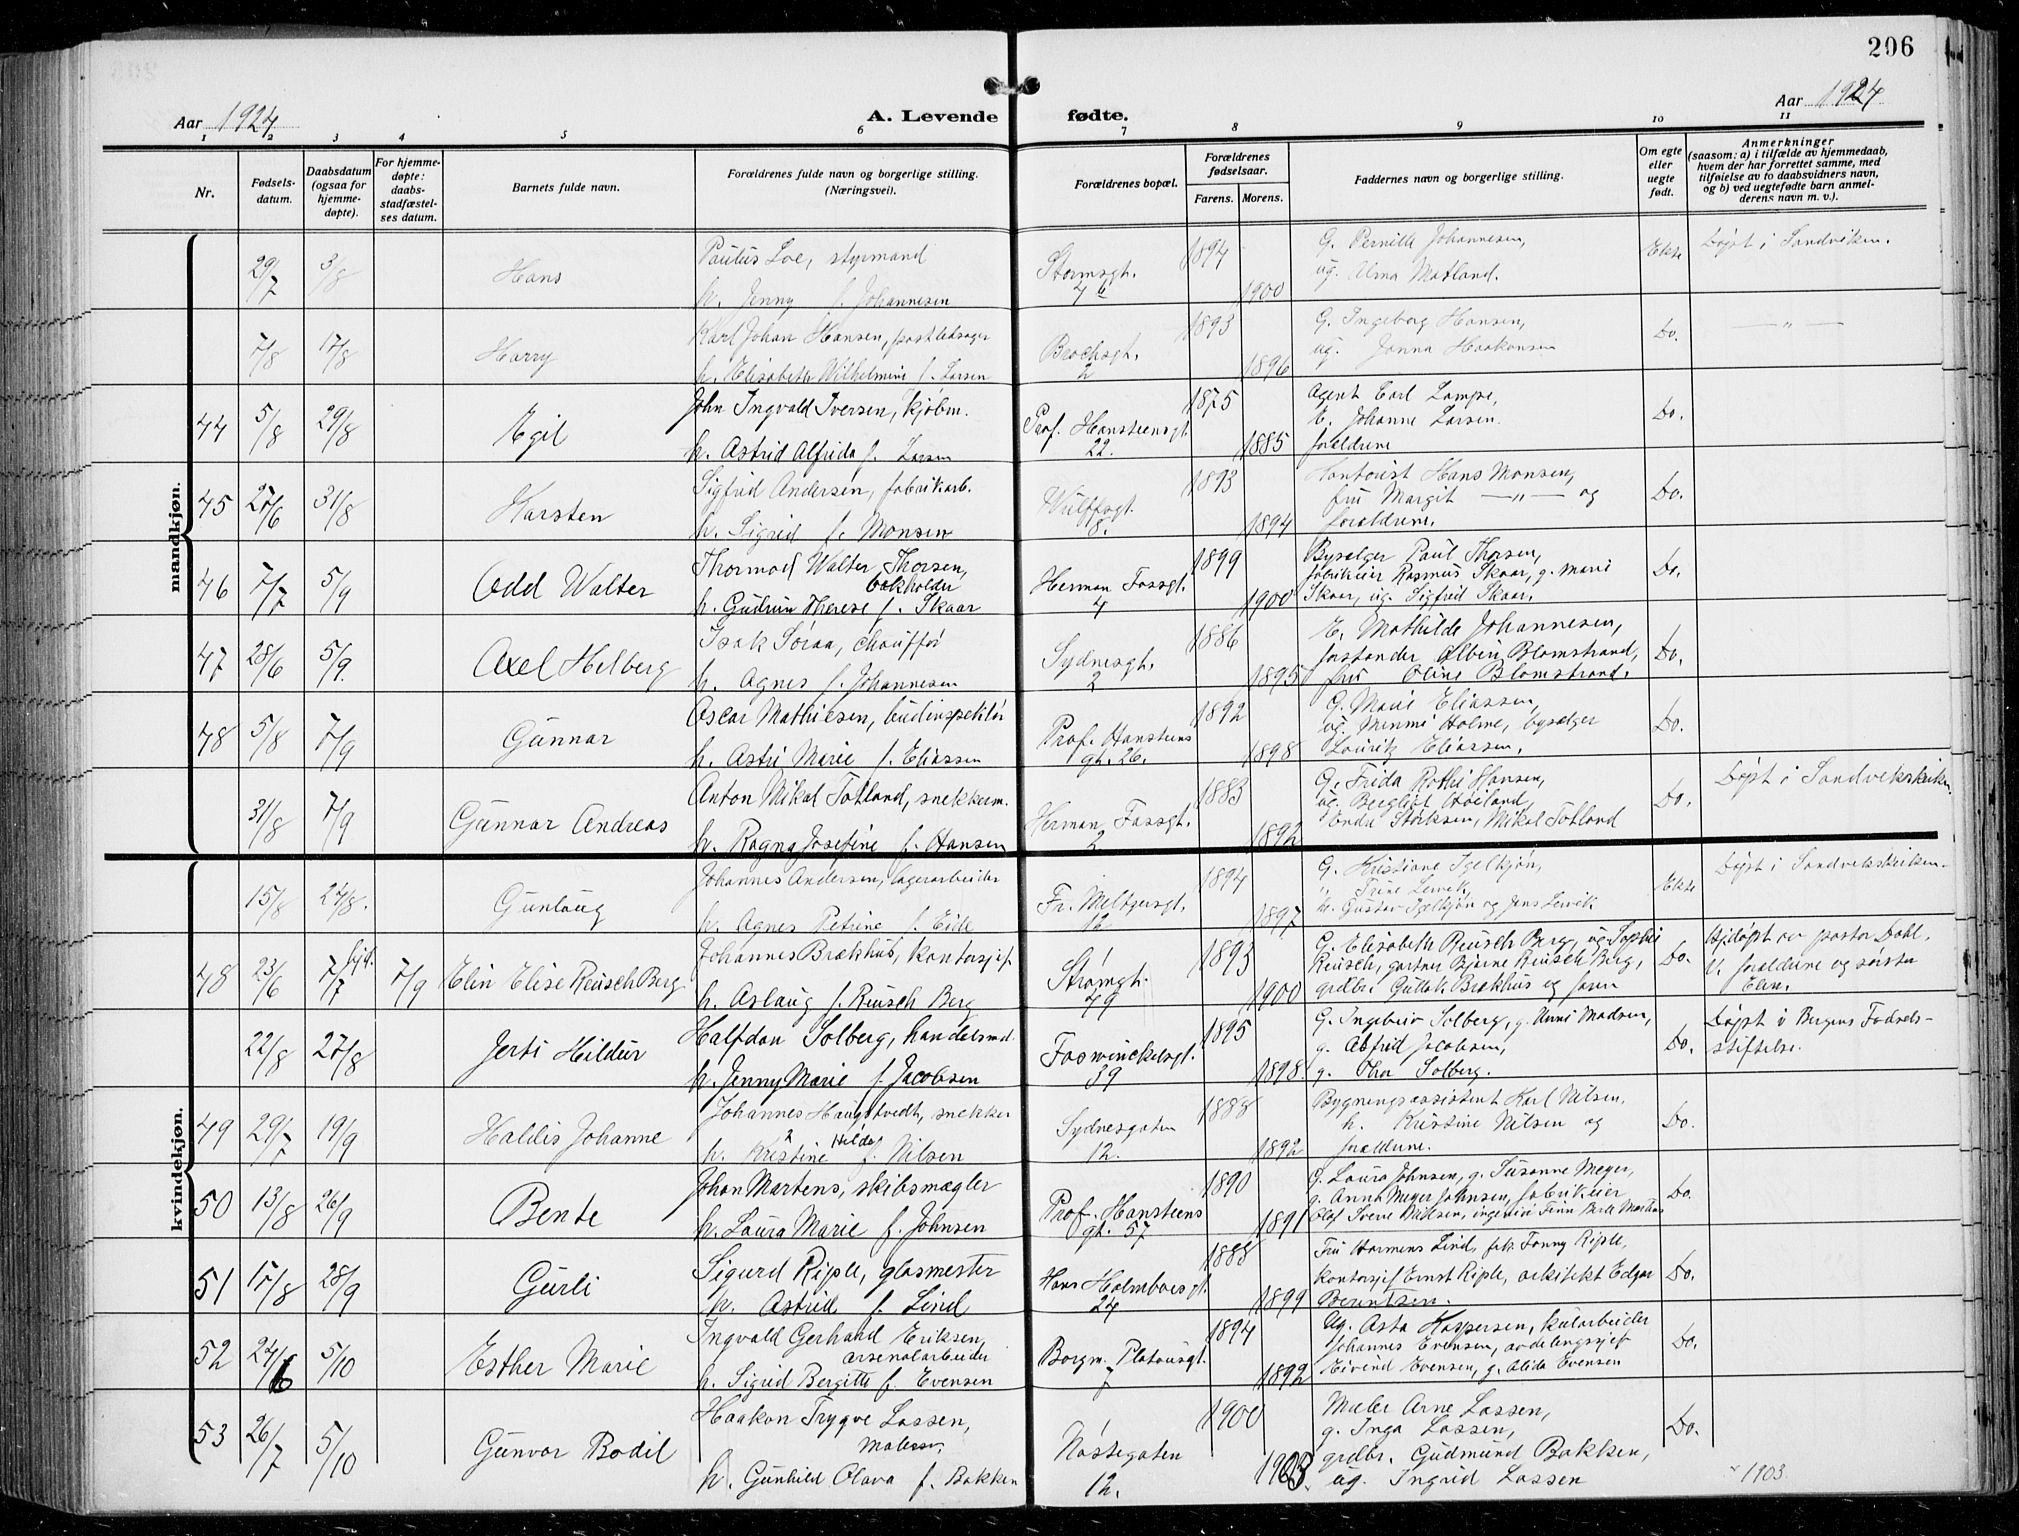 206
Aar 1924
A. Levende fødte.
Aar 1924
1 2 3 4 5 6 7 8 9 10 11
Nr.
Fødsels-
datum.
Daabsdatum
(ogsaa for
hjemme-
døpte).
For hjemme-
døpte:
daabs-
stadfæstel-
ses datum.
Barnets fulde navn.
Forældrenes fulde navn og borgerlige stilling.
(Næringsvei).
Forældrenes bopæl.
Forældrenes
fødselsaar.
Farens. Morens.
Faddernes navn og borgerlige stilling.
Om egte
eller
uegte
født.
Anmerkninger
(saasom: a) i tilfælde av hjemmedaab,
hvem der har forrettet samme, med
tilføielse av to daabsvidners navn,
og b) ved uegtefødte barn anmel-
derens navn m. v.).
mandkjøn.
29/7 3/8 Hans
Paulus Loe, styrmand
h. Jenny f. Johannesen
Stormsgt.
1894
1900
G. Pernille Johannesen,
ug. Alma Matland.
Ekte
Døpt i Sandviken.
7/8 17/8 Harry
Karl Johan Hansen, postledsager
h. Elisabeth Wilhelmine f. Larsen
Brochsgt.
2
1893
1896
G. Ingeborg Hansen,
ug. Jonna Haakonsen
Do.
— „ —
44 5/8 29/8 Egil
John Ingvald Iversen, kjøbm.
h. Astrid Alfrida f. Larsen
Prof. Hansteensgt.
22.
1875
1885
Agent Carl Lampe,
E. Johanne Larsen.
forældrene
Do.
45 27/6 31/8 Harsten
Sigfrid Andersen, fabrikarb.
h. Sigrid f. Monsen
Wulffsgt.
8.
1893
1894
Kontorist Hans Monsen,
fru Margit — „ — og
forældrene.
Do.
46 7/7 5/9 Odd Walter
Thormod Walter Thorsen,
bokholder
h. Gudrun Therese f. Skaar
Herman Fossgt.
4
1899
1900
Byselger Paul Thorsen,
fabrikeier Rasmus Skaar, g. Marie
Skaar, ug. Sigfrid Skaar.
Do.
47 28/6 5/9. Axel Helberg
Isak Soraa, chauffør
h. Agnes f. Johannesen
Sydnesgt.
2
1886
1895
E. Mathilde Johannesen,
forstander Albin Blomstrand,
fru Oline Blomstrand.
Do.
48 5/8 7/9 Gunnar
Oscar Mathiesen, budinspektør
h. Astri Marie f. Eliassen
Prof. Hansteens
gt. 26.
1892
1898
G. Marie Eliassen,
ug. Mimmi Holme, byselger
Lauritz Eliassen.
Do.
31/8 7/9 Gunnar Andreas
Anton Mikal Totland, snekkerm.
h. Ragna Josefine f. Hansen
Herman Fossgt.
2
1883
1892
G. Frida Hansen,
ug. Bergliot Høiland,
Mikal Totland
Do.
Døpt i Sandvikskirken.
kvindekjøn.
15/8 24/8. Gunlaug
Johannes Andersen, lagerarbeider
h. Agnes Petrine f. Eide
Fr. Meltzersgt.
12
1894
1897
G. Kristiane Igelkjøn,
„ Trine Lervik,
h. Gustav Igelkjøn og Jens Lervik
Ekte
Døpt i Sandvikskirken.
48 23/6 hjd. 7/7 7/9 Elin Elise Reusch Berg
Johannes Brækhus, kontorsjef
h. Aslaug f. Reusch Berg
Strømgt.
49
1893
1900
G. Elisabeth Reusch Berg, ug. Sophie
Reusch, gartner Bjarne Reusch Berg,
grdbr. Guttak Brækhus og faren
Do.
Hjdøpt av pastor Dahl.
V. forældrene og søster
Elen.
22/8 27/8 Jerti Hildur
Halfdan Solberg, handelsmd.
h. Jenny Marie f. Jacobsen
Foswinckelsgt.
39
1895
1898.
G. Ingeborg Solberg, g. Anni Madsen,
g. Alfrid Jacobsen,
g. Thor Solberg.
Do.
Døpt i Bergens Fødsels-
stiftelse.
49 29/7 19/9 Haldis Johanne
Johannes Haugstvedt, snekker
h. Kristine Hilda f. Nilsen
Sydnesgaten
12.
1888
1892
Bygningsassistent Karl Nilsen,
h. Kristine Nilsen og
forældrene.
Do.
50 13/8 26/9 Bente
Johan Martens, skibsmægler
h. Laura Marie f. Johnsen
Prof. Hansteens
gt. 57
1890
1891
G. Laura Johnsen, g. Susanne Meyer,
g. Anna Meyer Johnsen, fabrikeier
Do.
51 17/8 28/9 Gurli
Sigurd Riple, glasmester
h. Astrid f. Lind
Hans Holmboesgt.
24
1888
1899
Fru Harmens Lind, frk. Fanny Riple,
kontorsjef Ernst Riple, arkitekt Edgar
Berentsen.
Do.
52 24/6 5/10 Esther Marie
Ingvald Gerhard Eriksen,
arsenalarbeider
h. Sigrid Bergitte f. Evensen
Borgm. Platousgt.
7
1894
1892
Ug. Asta Kaspersen, kularbeider
Johannes Evensen, avdelingsjef
Eivind Evensen, g. Alida Evensen
Do.
53 26/7 5/10 Gunvor Bodil
Haakon Trygve Lassen,
malersv.
h. Gunhild Olava f. Bakken
Nøstegaten
12.
1900
1903.
Maler Arne Lassen,
g. Inga Lassen,
grdbr. Gudmund Bakken,
ug. Ingrid Lassen
Do.
× 1903.